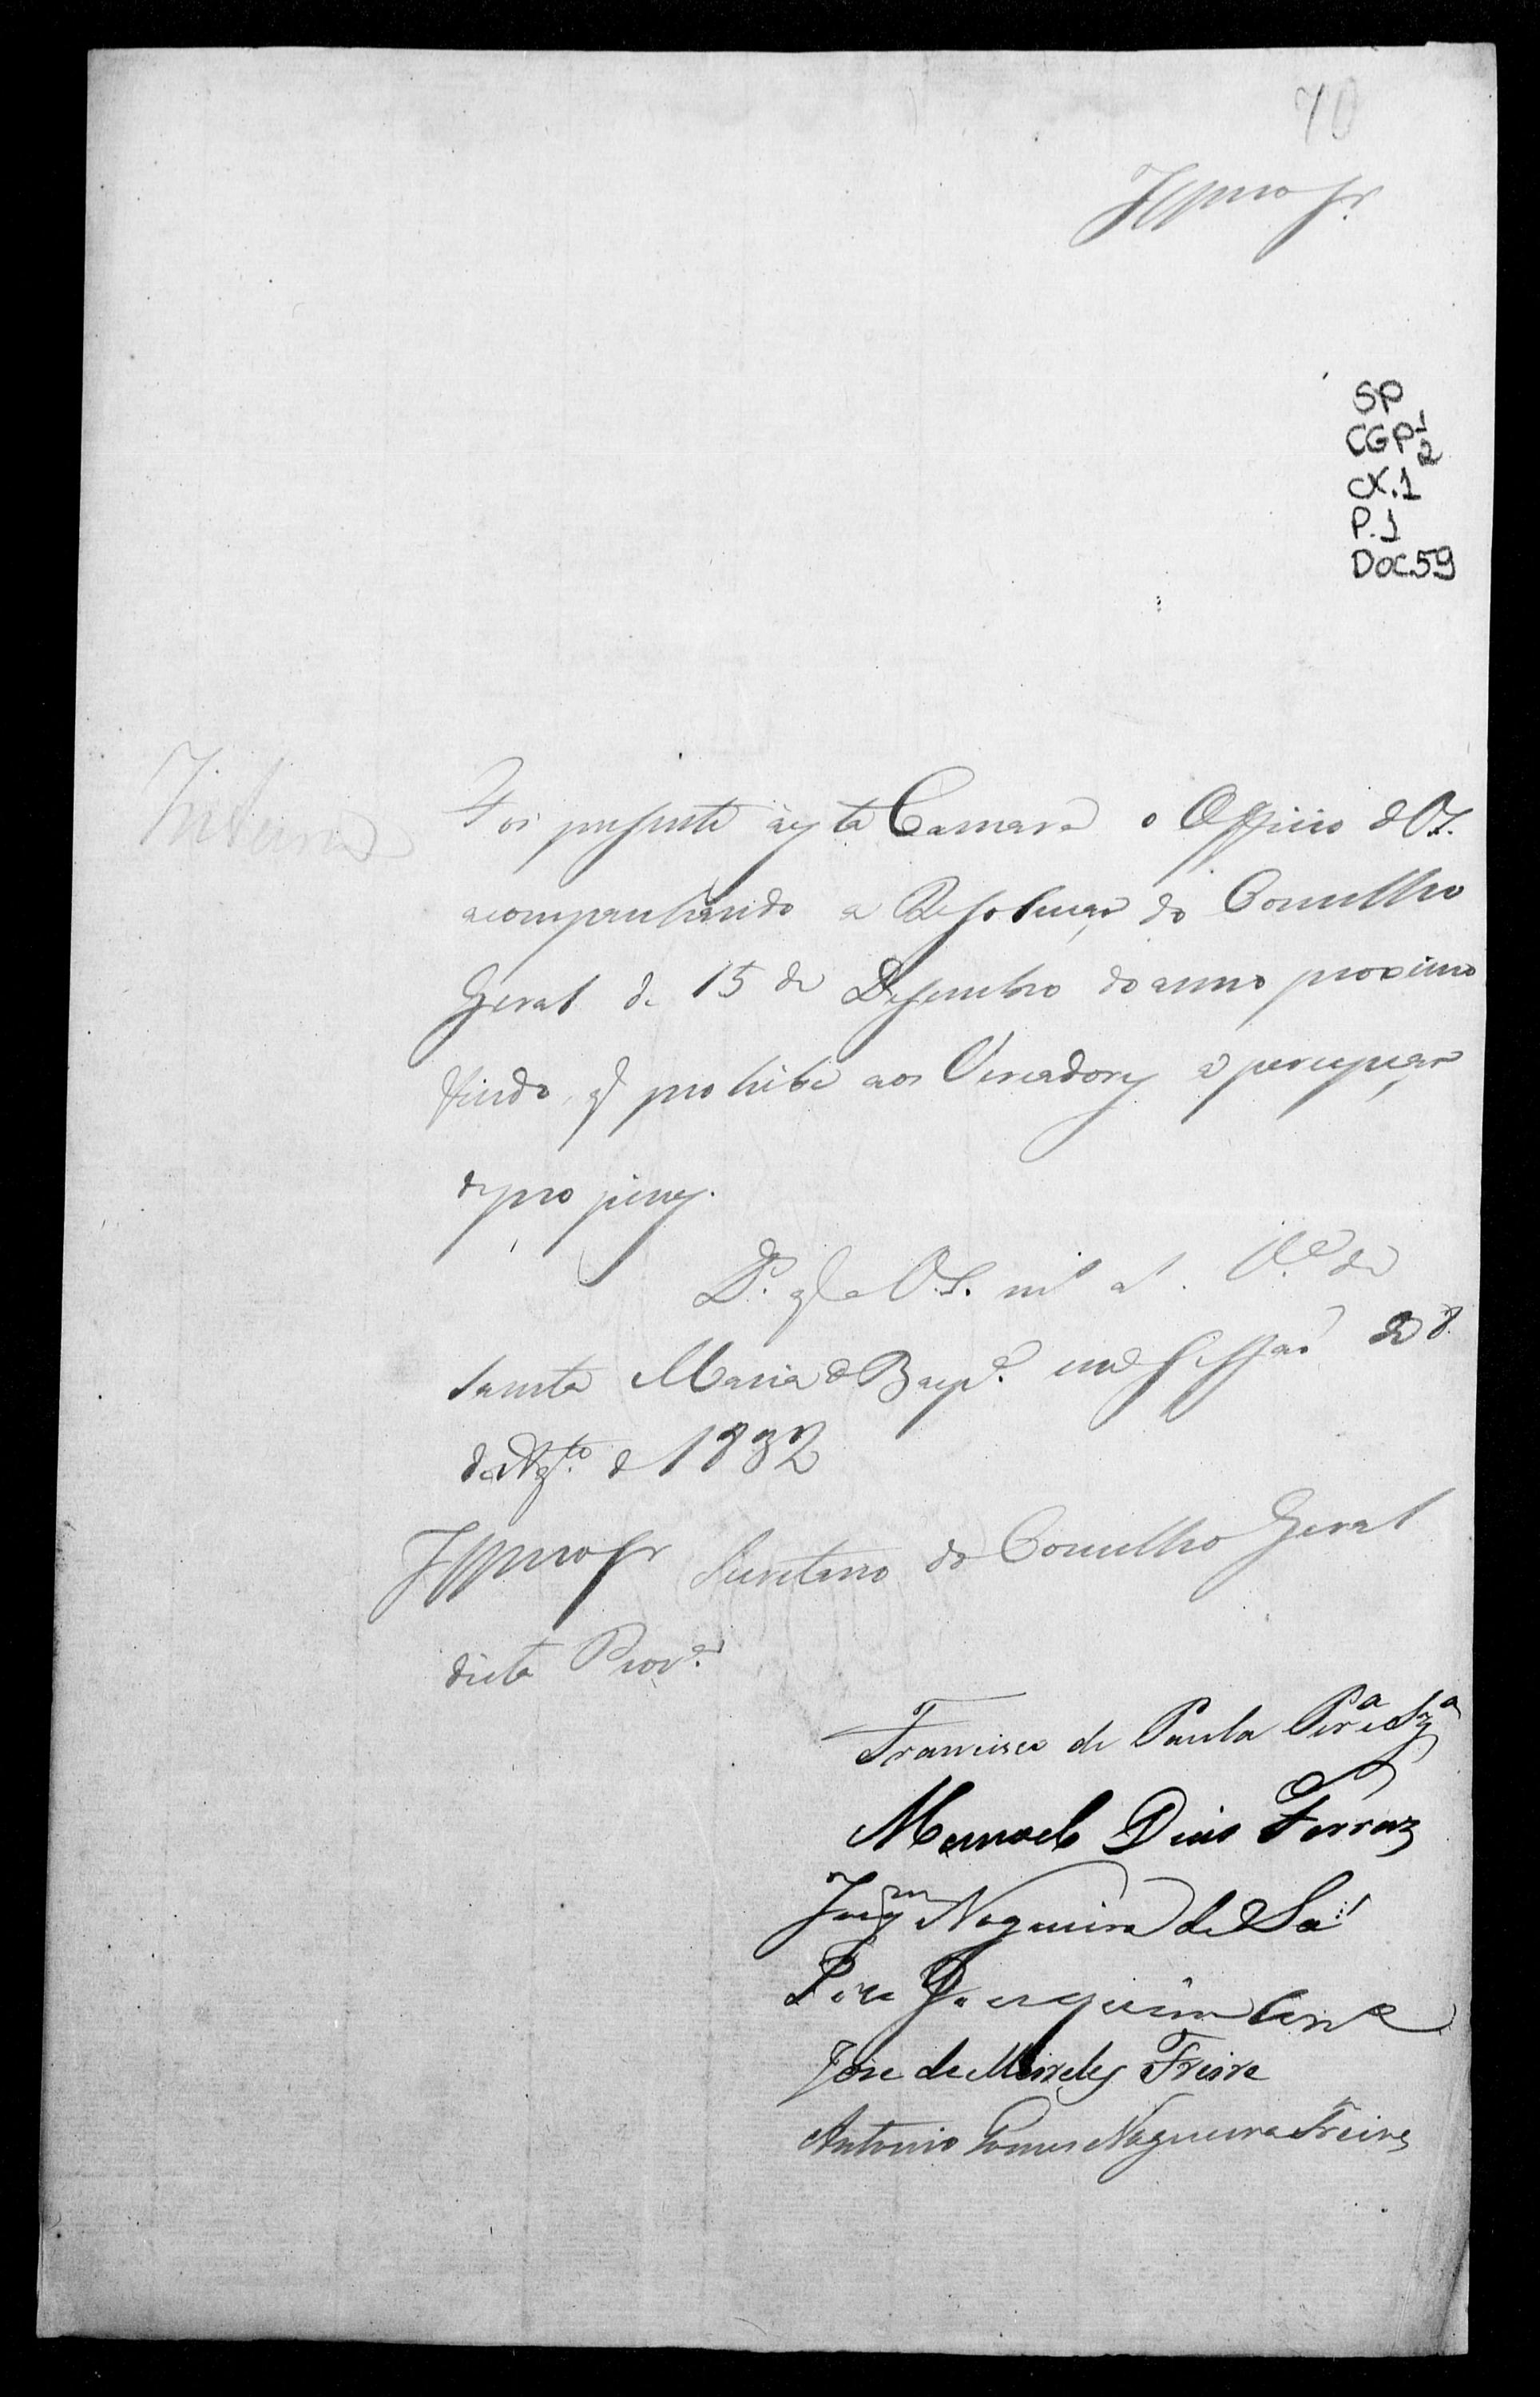 70
Illmo Sr.
SP
CGP 1
2
CX.1
P.1
Doc59
Foi presente aesta Camara o Officio de V.S.
acompanhando a Resolucaõ do Conselho
Geral de 15 de Desembro do anno proximo
findo, q prohibe aos Vereadores a percepçaõ
de propinas.
Ds. ge a V.S. ms as. Va. de
Santa Maria de Baepdi. em Sessaõ de 8
de Agto. de 1832
Illmo Sr Secretario do Conselho Geral
desta Prova.
Francisco de Paula Pera e Sza
Manoel Dias Ferraz
Joaqm Nogueira de Sá
José
Jose de Meireles Freire
Antonio Gomes Nogueira Freire